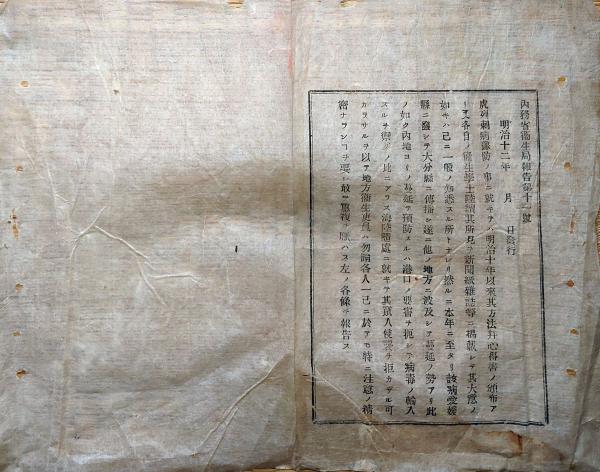 內務省衞生局報告第十一號
明治十二年　月　日發行
虎列剌病豫防ノ事ニ就キテハ明治十年以來其方法幷心得書ノ頒布ア
リ又各自ノ衞生學士陸續其所見ヲ新聞紙雜誌等ニ揭載シテ其大意ノ
如キハ已ニ一般ノ知悉スル所トナレリ然ルニ本年ニ至タリ該病愛媛
縣ニ發シテ大分縣ニ傳播シ遂ニ他ノ地方ニ波及シテ蔓延ノ勢アリ此
ノ如ク內地ヨリノ蔓延ヲ預防スルハ港口ノ要害ヲ扼シテ病毒ノ輸入
スルヲ禦クノ比ニアラス海陸隨處ニ就キテ其竄入侵襲ヲ拒カサル可
カラサルヲ以テ地方衞生吏員ハ勿論各人一己ニ於テモ特ニ注意ノ精
密ナランコヲ要ス敢テ重複ヲ厭ハス左ノ各條ヲ報告ス